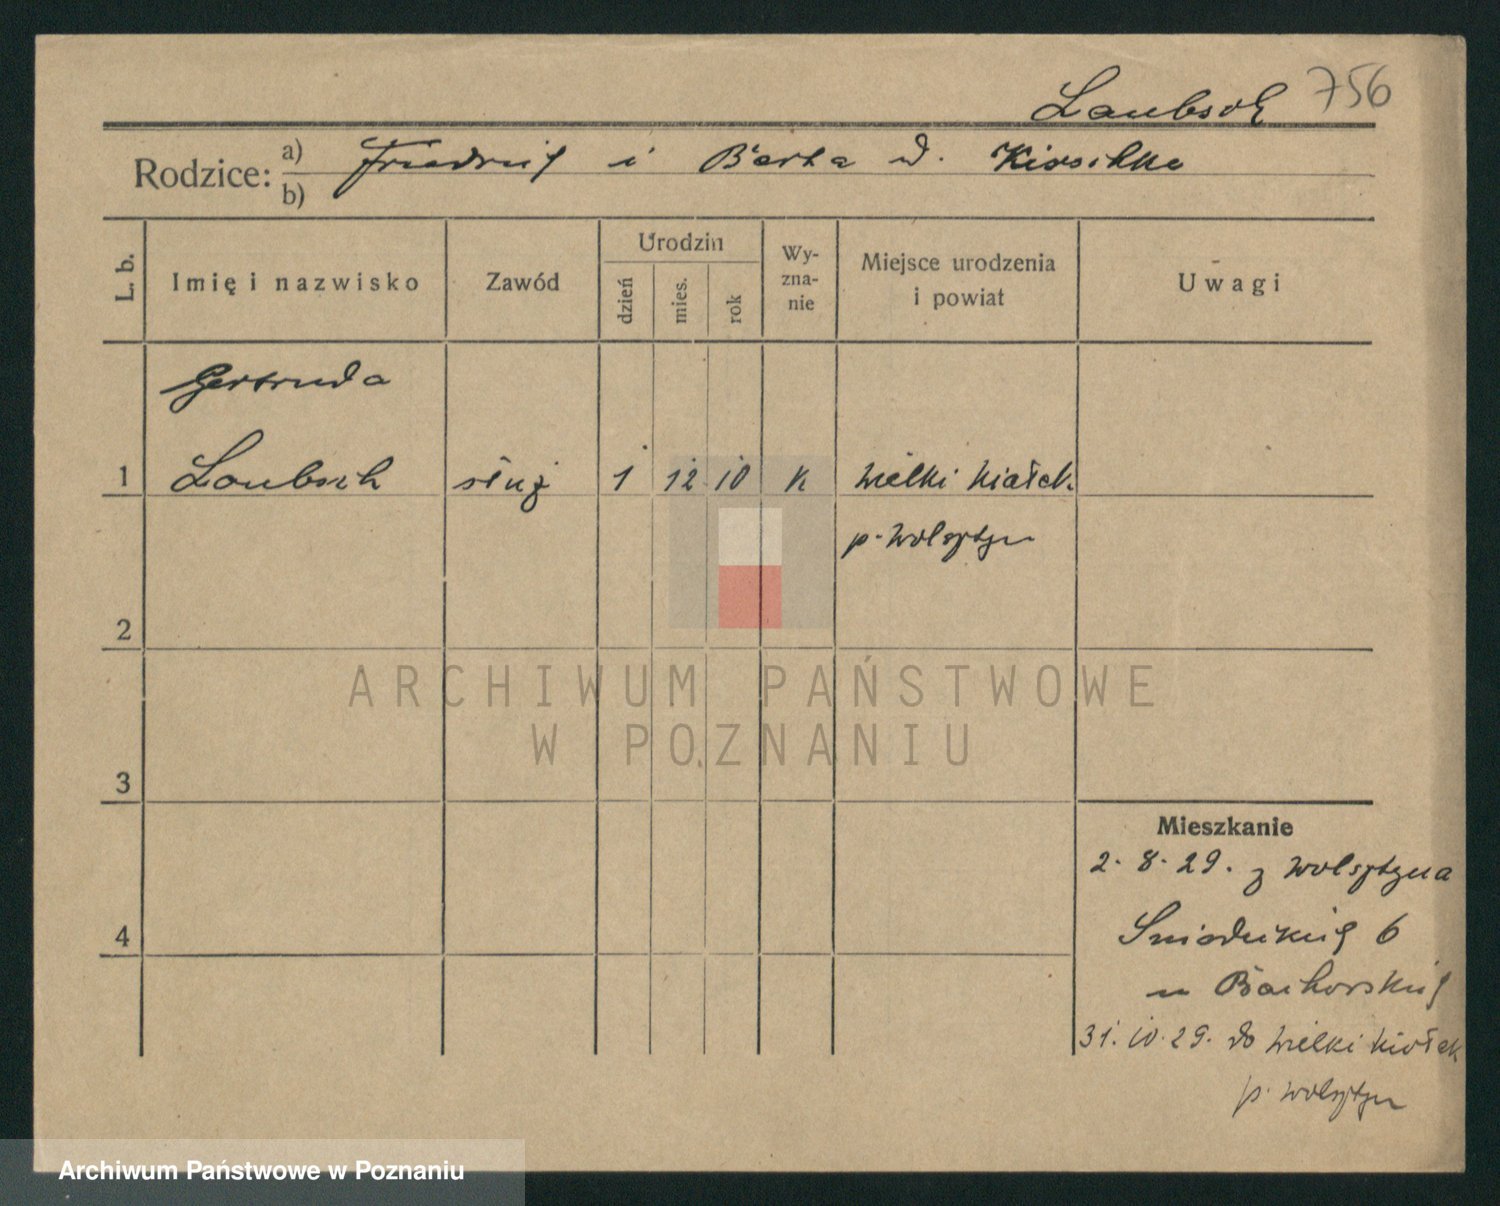 Laubsch 756
Rodzice: a) Friedrich i Berta d. Kirschke
b)
L. b.
Imię i nazwisko
Zawód
Urodzin
dzień
mies.
rok
Wy-
zna-
nie
Miejsce urodzenia
i powiat
Uwagi
Gertruda
1 Laubsch służ 1 12 10 k Wielki Kiałek.
p. Wolsztyn
2
3
4
Mieszkanie
2. 8. 29. z Wolsztyna
6
u
31. 10. 29. do Wielki Kiałek
p. Wolsztyn
ARCHIWUM PAŃSTWOWE
W POZNANIU
Archiwum Państwowe w Poznaniu